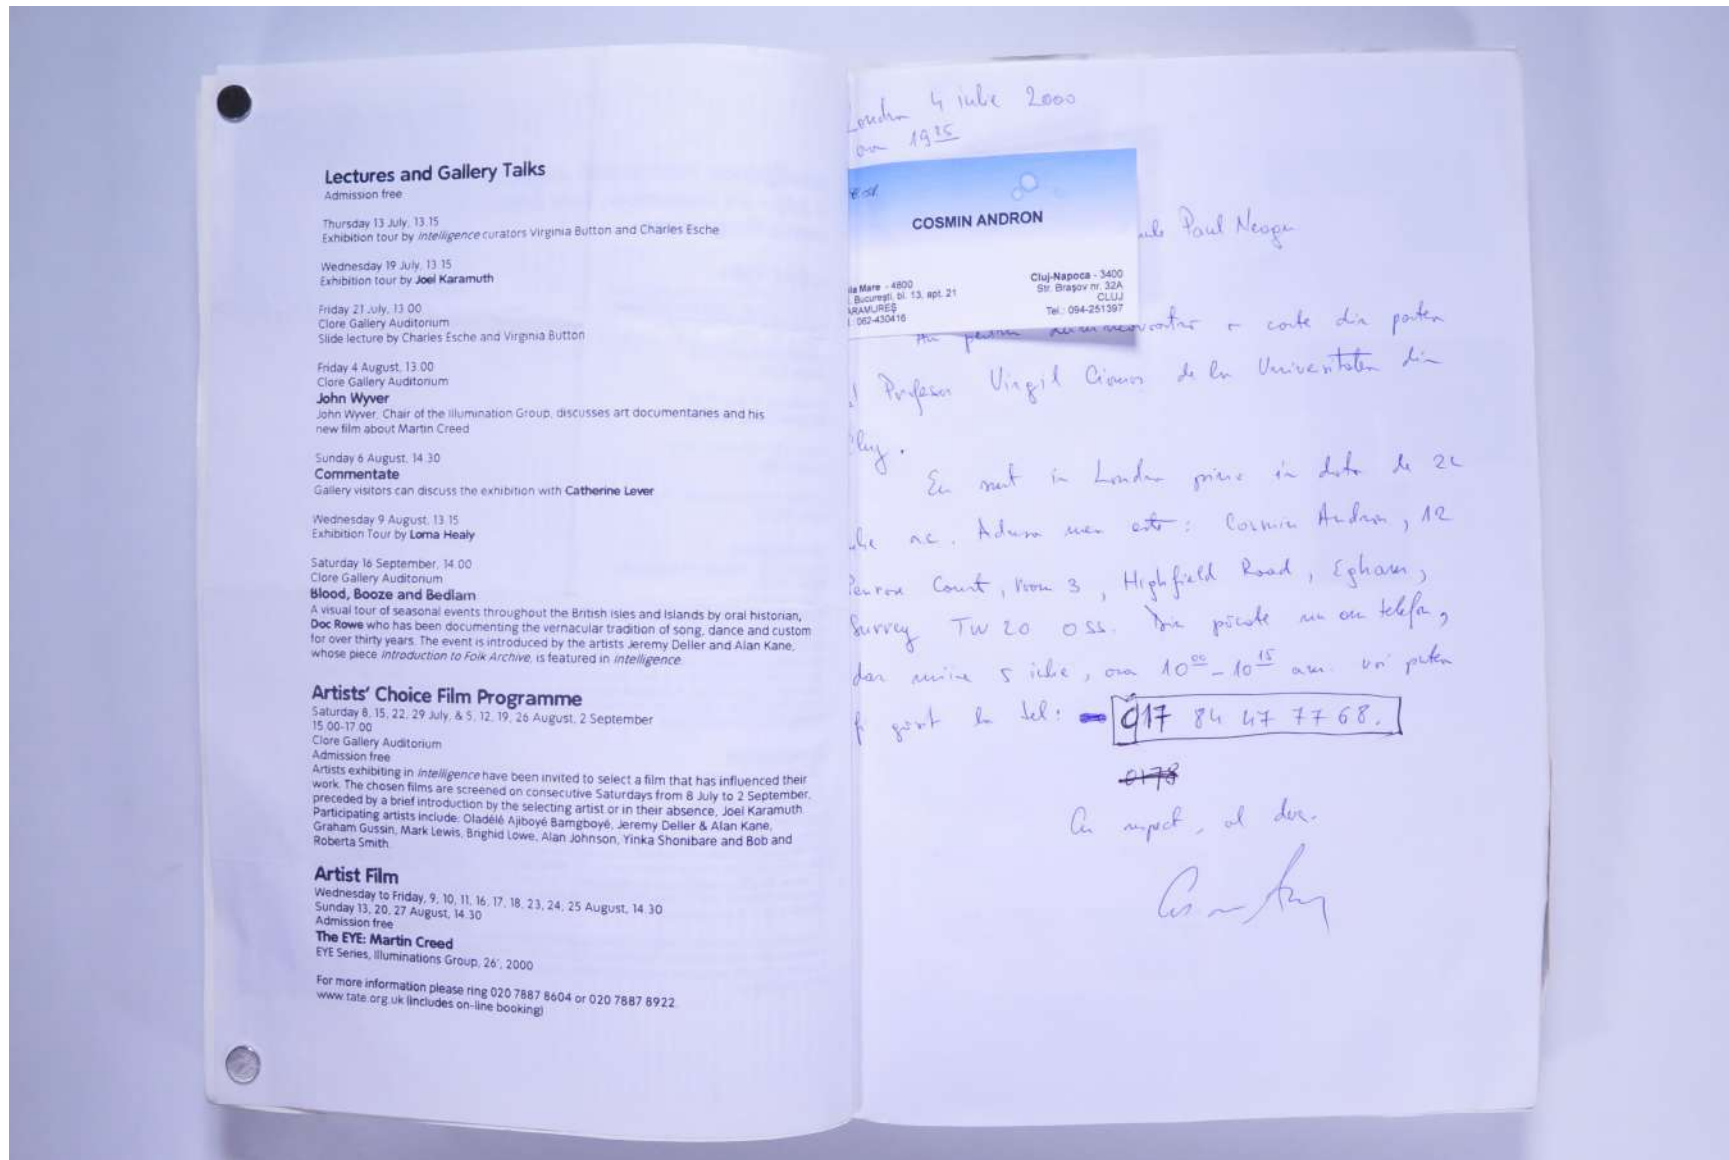 Lectures and Gallery Talks
Admission free
Thursday 13 July, 13.15
Exhibition tour by Intelligence curators Virginia Button and Charles Esche
Wednesday 19 July, 13.15
Exhibition tour by Joel Karamuth
Friday 21 July, 13.00
Clore Gallery Auditorium
Slide lecture by Charles Esche and Virginia Button
Friday 4 August, 13.00
Clore Gallery Auditorium
John Wyver
John Wyver, Chair of the Illumination Group, discusses art documentaries and his
new film about Martin Creed
Sunday 6 August, 14.30
Commentate
Gallery visitors can discuss the exhibition with Catherine Lever
Wednesday 9 August, 13.15
Exhibition Tour by Lorna Healy
Saturday 16 September, 14.00
Clore Gallery Auditorium
Blood, Booze and Bedlam
A visual tour of seasonal events throughout the British Isles and Islands by oral historian,
Doc Rowe who has been documenting the vernacular tradition of song, dance and custom
for over thirty years. The event is introduced by the artists Jeremy Deller and Alan Kane,
whose piece Introduction to Folk Archive, is featured in Intelligence.
Artists' Choice Film Programme
Saturday 8, 15, 22, 29 July, & 5, 12, 19, 26 August, 2 September
15.00-17.00
Clore Gallery Auditorium
Admission free
Artists exhibiting in Intelligence have been invited to select a film that has influenced their
work. The chosen films are screened on consecutive Saturdays from 8 July to 2 September,
preceded by a brief introduction by the selecting artist or in their absence, Joel Karamuth.
Participating artists include: Oladélé Ajiboyé Bamgboyé, Jeremy Deller & Alan Kane,
Graham Gussin, Mark Lewis, Brighid Lowe, Alan Johnson, Yinka Shonibare and Bob and
Roberta Smith.
Artist Film
Wednesday to Friday, 9, 10, 11, 16, 17, 18, 23, 24, 25 August, 14.30
Sunday 13, 20, 27 August, 14.30
Admission free
The EYE: Martin Creed
EYE Series, Illuminations Group, 26', 2000
For more information please ring 020 7887 8604 or 020 7887 8922.
www.tate.org.uk (includes on-line booking)
Londra 4 iulie 2000
ora 19 25
COSMIN ANDRON
Mare - 4800
București, bl. 13, apt. 21
062-430416
Cluj-Napoca - 3400
Str. Brașov nr. 32A
CLUJ
Tel.: 094-251397
Paul Neagu
Am pentru o carte din partea
Profesor Virgil Ciomoș de la Universitatea din
Cluj.
Eu sunt in Londra până in data de
a.c. Adresa mea este: Cosmin Andron, 12
Court, room 3, Highfield Road, Egham,
Surrey TW20 0SS. Din păcate nu am telefon,
dar mâine 5 iulie, ora 10 00 - 10 15 a.m. voi putea
fi găsit la tel: 017 84 47 77 68.
0178
Cu respect, al dvs.